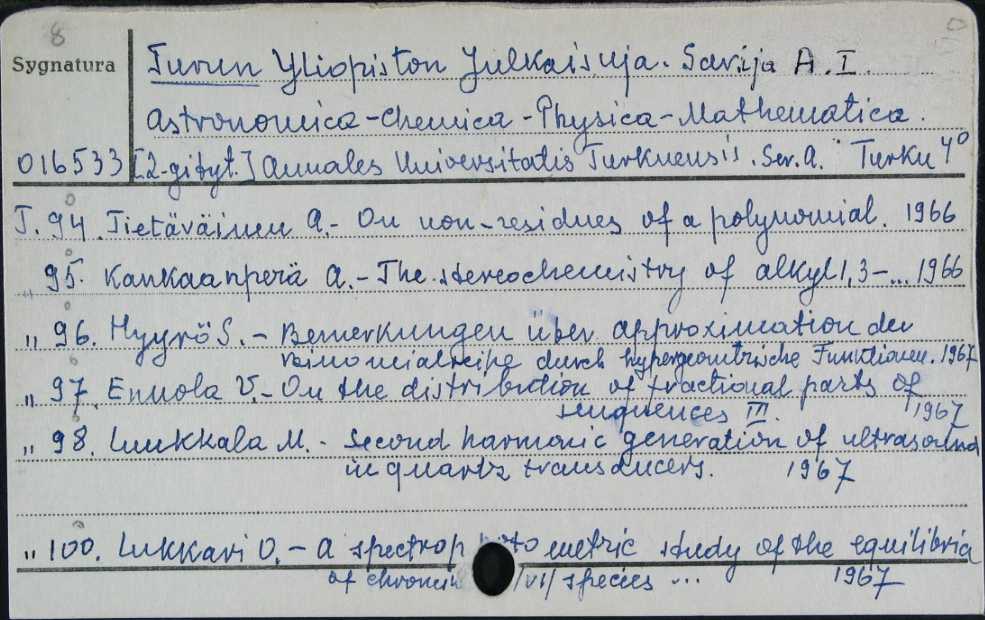 8
Sygnatura Turun Yliopiston Julkaisuja. Sarija A. I.
Astronomica-Chemica-Physica-Mathematica.
016533 [2-gi tyt.] Annales Universitatis Turkuensis. Ser. A. Turku 4°
T. 94. Tietäväinen A.- On non-residues of a polynomial. 1966
" 95. Kankaanperä A.- The stereochemistry of alkyl 1,3-... 1966
" 96. Hyyrö S. - Bemerkungen über approximation der
binomialreihe durch hypergeometrische Funktionen. 1967
" 97. Ennola V.- On the distribution of fractional parts of
sequences III. 1967
" 98. Luukkala M. - Second harmonic generation of ultrasound
in quartz transducers. 1967
" 100. Lukkari O. - A spectrop oto metric study of the equilibria
of chromiu /VI/ species ... 1967